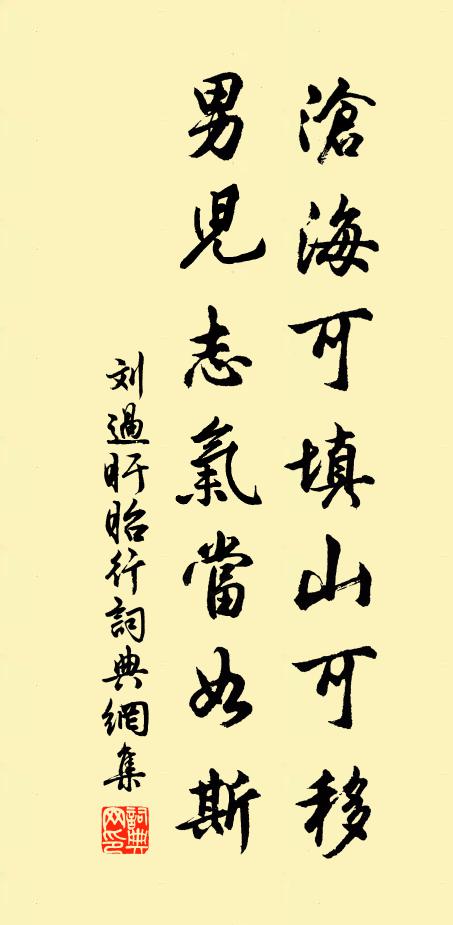 滄海可填山可移
男児志氣當如斯
刘過盱眙行詞典網集
詞典
网印